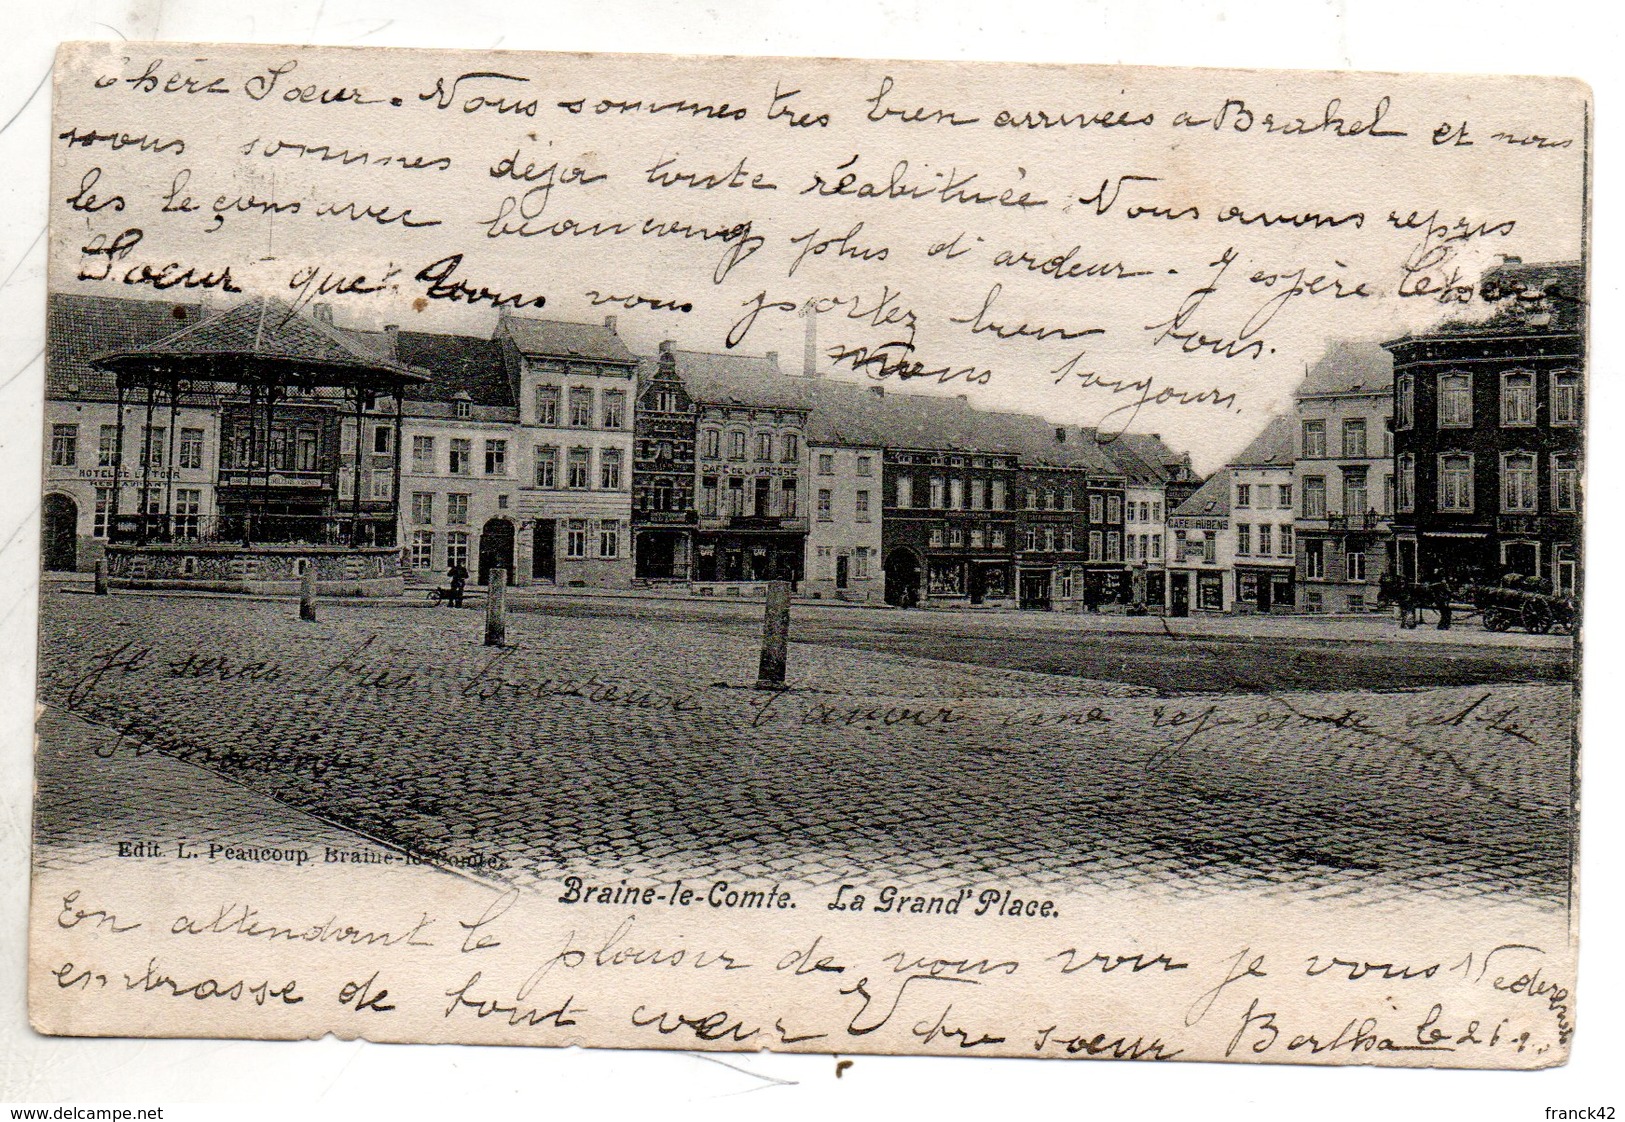 Chère Sœur. Nous sommes tres bien arrivées a Brakel et nous
nous sommes déja toute réabituée. Nous avons repris
les leçons avec beaucoup plus d'ardeur. J'espère chère
Soeur que vous vous portez bien tous.
Nous toujours.
HOTEL DE LA TOUR
RESTAURANT
CAFÉ DE LA PRESSE
CAFÉ RUBENS
Je serai tres heureuse d'avoir une reponse cette
Semaine
Edit. L. Peaucoup, Braine-le-Comte.
Braine-le-Comte. La Grand' Place.
En attendant le plaisir de vous voir je vous
embrasse de tout cœur Votre sœur Bertha
www.delcampe.net
franck42